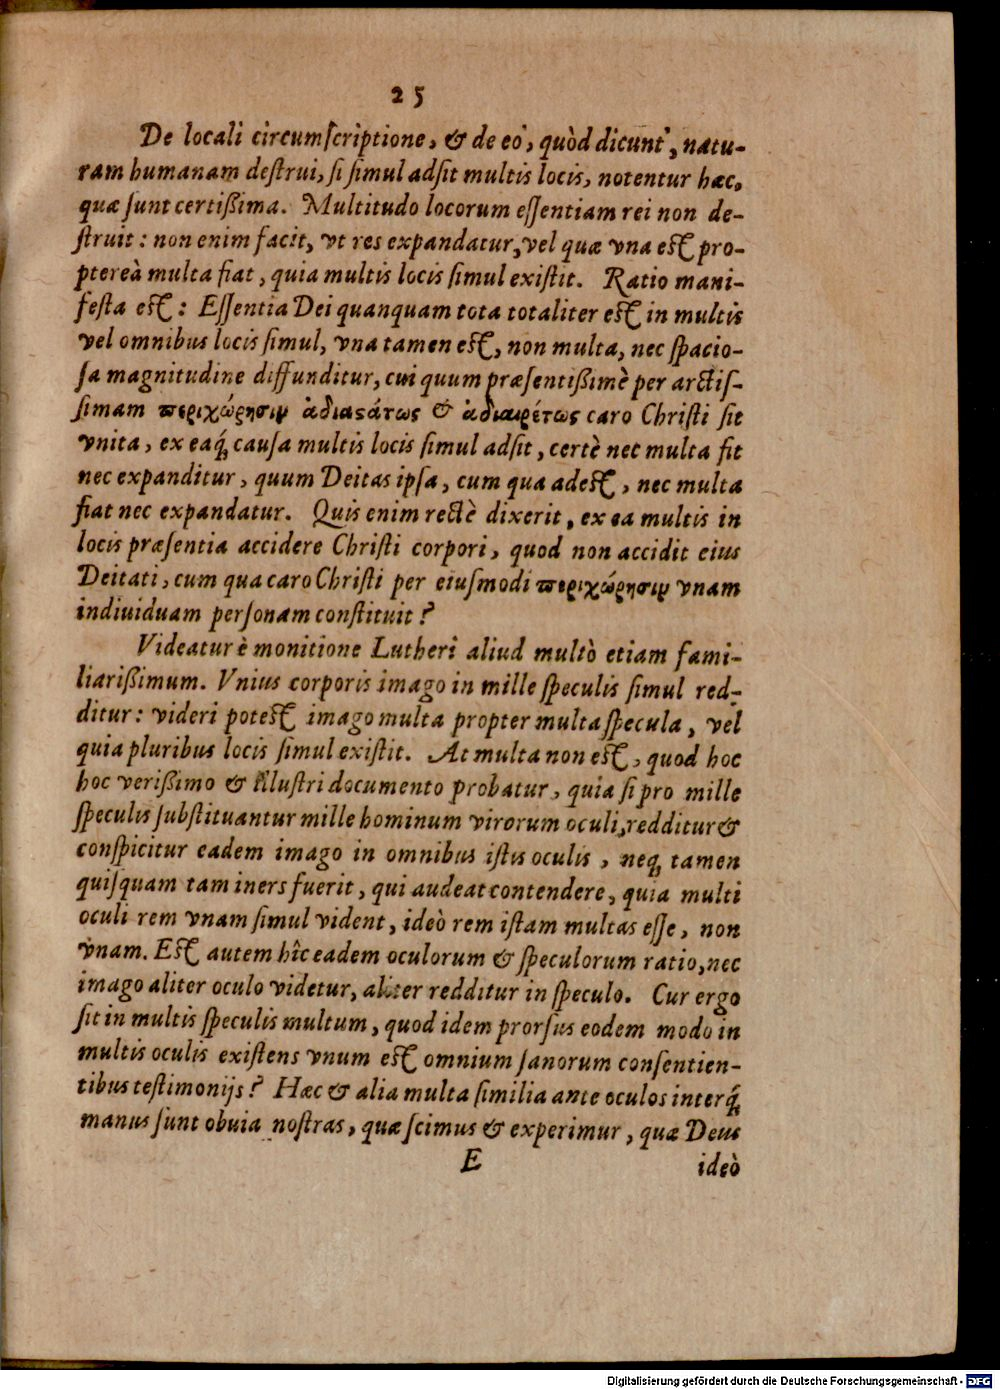 25
De locali circumſcriptione, & de eo, quòd dicunt, natu-
ram humanam deſtrui, ſi ſimul adſit multis locis, notentur hæc,
quæ ſunt certißima. Multitudo locorum eſſentiam rei non de-
ſtruit: non enim facit, vt res expandatur, vel quæ vna est pro-
ptereà multa fiat, quia multis locis ſimul exiſtit. Ratio mani-
feſta est: Eſſentia Dei quanquam tota totaliter est in multis
vel omnibus locis ſimul, vna tamen est, non multa, nec ſpacio-
ſa magnitudine diffunditur, cui quum præſentißimè per arctiſ-
ſimam περιχώρησιν ἀδιαςάτως & ἀδιαιρέτως caro Chriſti ſit
vnita, ex eaq́; cauſa multis locis ſimul adſit, certè nec multa fit
nec expanditur, quum Deitas ipſa, cum qua adest, nec multa
fiat nec expandatur. Quis enim rectè dixerit, ex ea multis in
locis præſentia accidere Chriſti corpori, quod non accidit eius
Deitati, cum qua caro Chriſti per eiuſmodi περιχώρησιν vnam
indiuiduam perſonam conſtituit?
Videatur è monitione Lutheri aliud multò etiam fami-
liarißimum. Vnius corporis imago in mille ſpeculis ſimul red-
ditur: videri potest imago multa propter multa ſpecula, vel
quia pluribus locis ſimul exiſtit. At multa non est, quod hoc
hoc verißimo & illuſtri documento probatur, quia ſi pro mille
ſpeculis ſubſtituantur mille hominum virorum oculi, redditur &
conſpicitur eadem imago in omnibus iſtis oculis, neq; tamen
quiſquam tam iners fuerit, qui audeat contendere, quia multi
oculi rem vnam ſimul vident, ideò rem iſtam multas eſſe, non
vnam. Est autem hîc eadem oculorum & ſpeculorum ratio, nec
imago aliter oculo videtur, aliter redditur in ſpeculo. Cur ergo
ſit in multis ſpeculis multum, quod idem prorſus eodem modo in
multis oculis exiſtens vnum est omnium ſanorum conſentien-
tibus teſtimonijs? Hæc & alia multa ſimilia ante oculos interq́;
manus ſunt obuia noſtras, quæ ſcimus & experimur, quæ Deus
E ideò
Digitalisierung gefördert durch die Deutsche Forschungsgemeinschaft - DFG